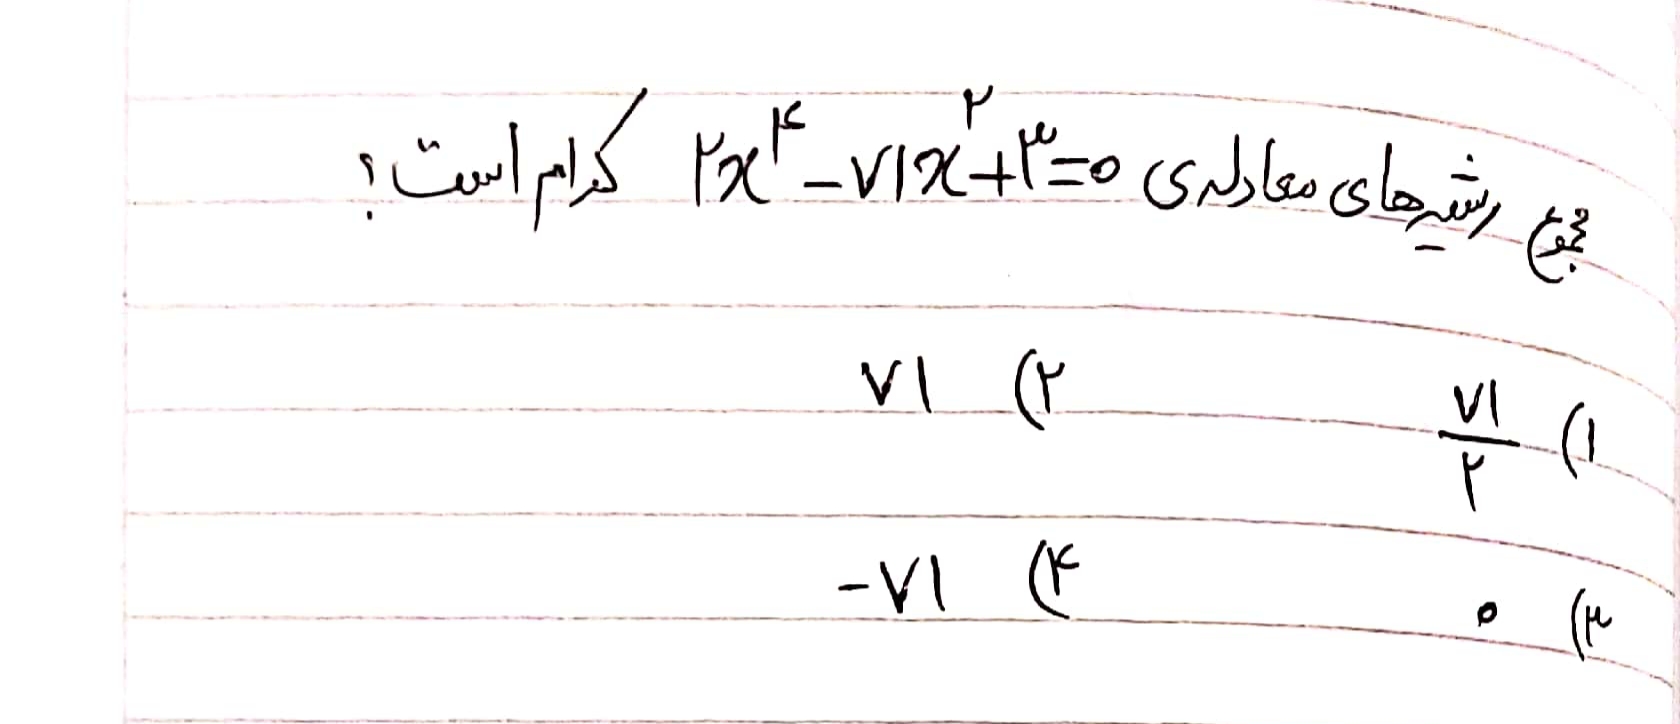 مجموع ریشه‌های معادله‌ی ۲x^۴ - ۷۱x^۲ + ۳ = ۰ کدام است؟
۱) ۷۱/۲ ۲) ۷۱
۳) ۰ ۴) -۷۱